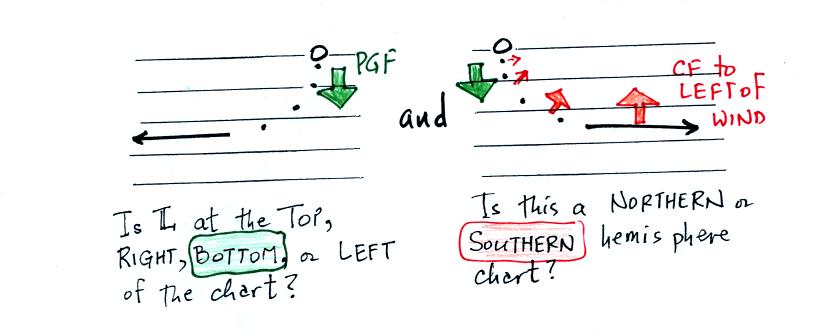 PGF
and
CF to
LEFT OF
WIND
Is L at the TOP,
RIGHT, BOTTOM, or LEFT
of the chart?
Is this a NORTHERN or
SOUTHERN hemisphere
chart?